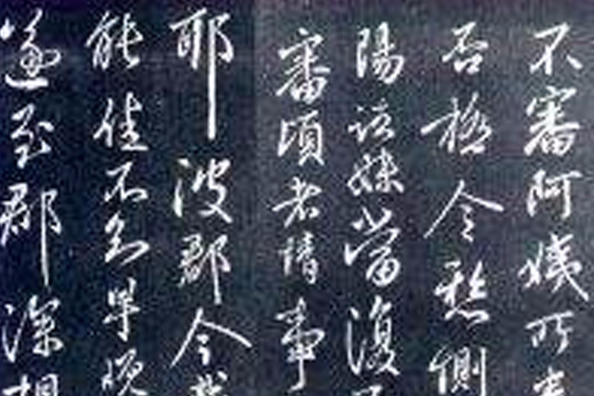 不審阿姨所
否極令愁側
陽諸妹當復
審頃者情事
耶波郡今
能佳不知早晚
遂至郡深想